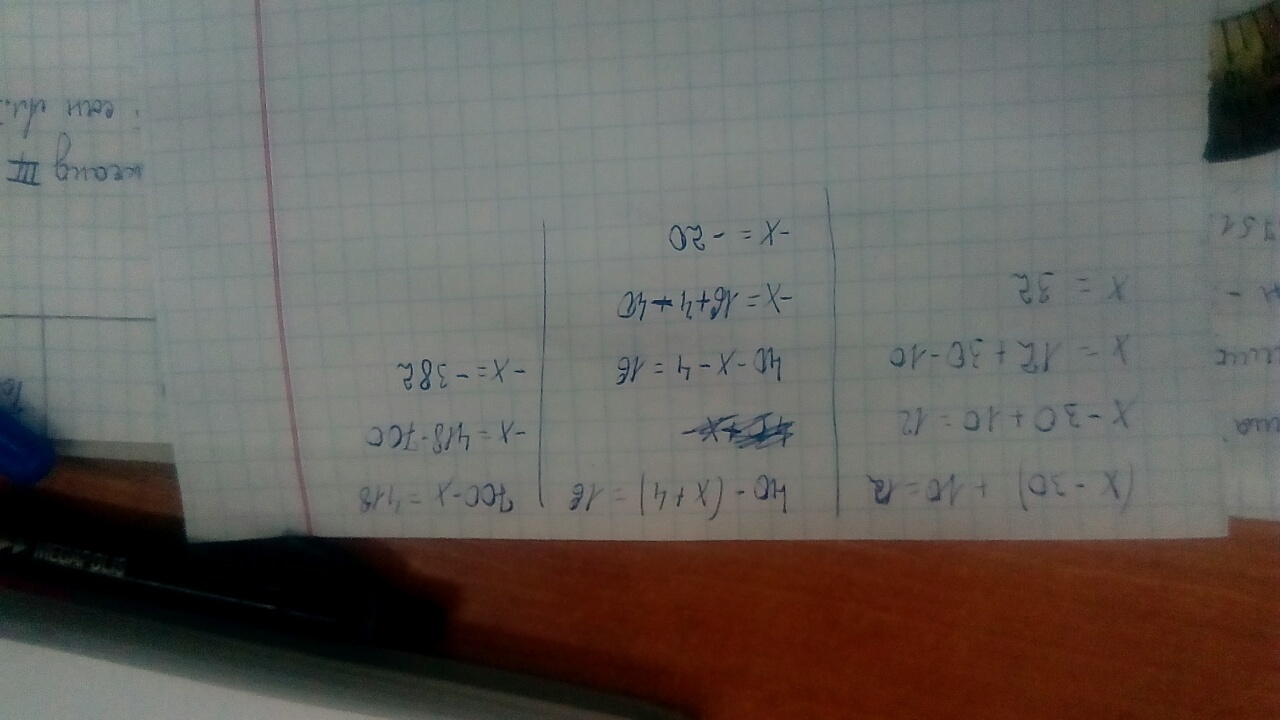 (x - 30) + 10 = 12
x - 30 + 10 = 12
x = 12 + 30 - 10
x = 32
40 - (x + 4) = 16
40 - x - 4 = 16
-x = 16 + 4 - 40
-x = -20
700 - x = 418
-x = 418 - 700
-x = -382
III
если